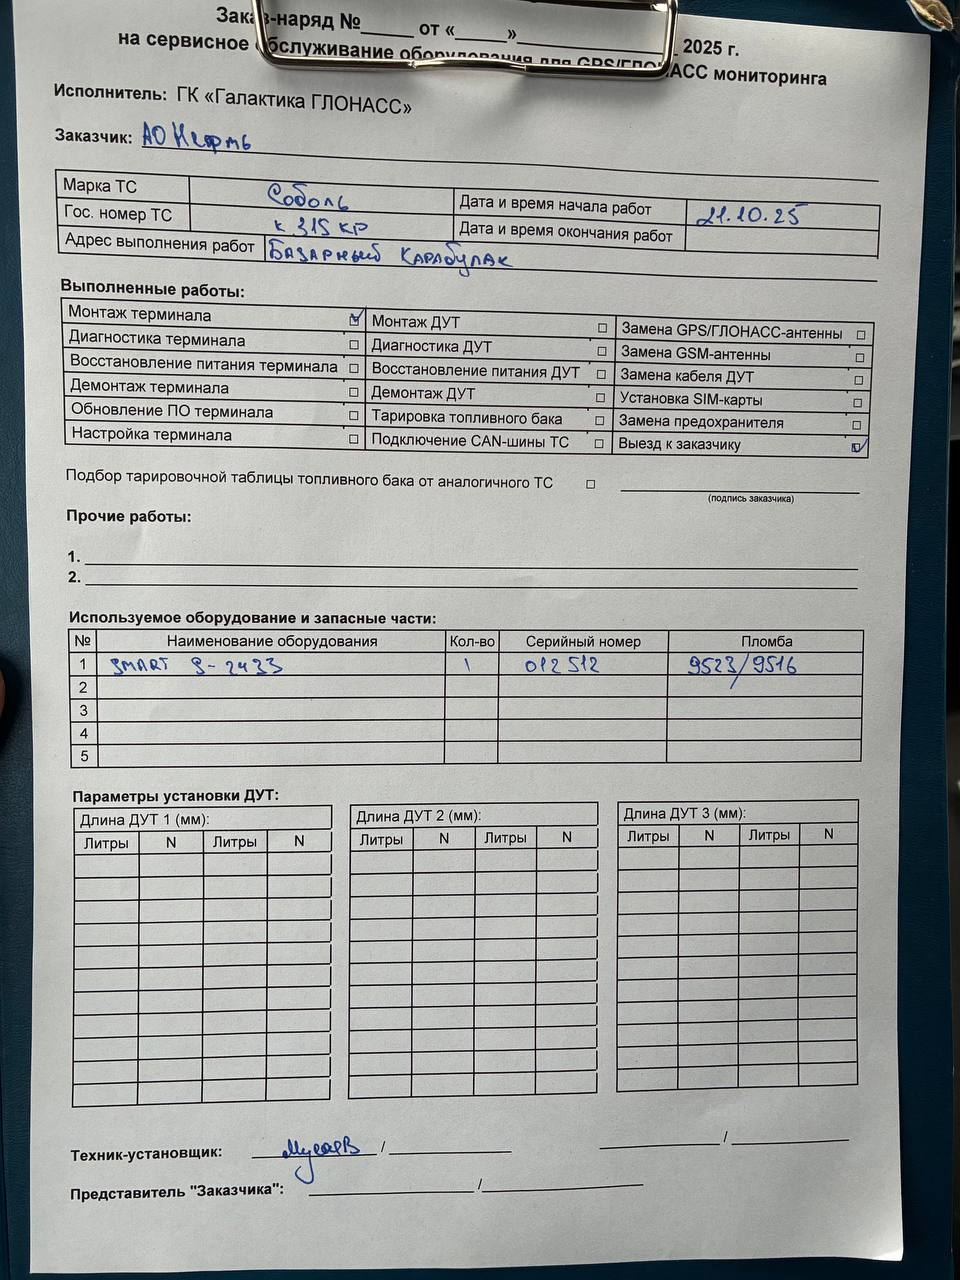 Заказ-наряд №_____ от «_____»_______________ 2025 г.
на сервисное обслуживание оборудования для GPS/ГЛОНАСС мониторинга
Исполнитель: ГК «Галактика ГЛОНАСС»
Заказчик: АО
Марка ТС Соболь Дата и время начала работ 21.10.25
Гос. номер ТС К 315 КР Дата и время окончания работ
Адрес выполнения работ Базарный Карабулак
Выполненные работы:
Монтаж терминала ☑ Монтаж ДУТ □ Замена GPS/ГЛОНАСС-антенны □
Диагностика терминала □ Диагностика ДУТ □ Замена GSM-антенны □
Восстановление питания терминала □ Восстановление питания ДУТ □ Замена кабеля ДУТ □
Демонтаж терминала □ Демонтаж ДУТ □ Установка SIM-карты □
Обновление ПО терминала □ Тарировка топливного бака □ Замена предохранителя □
Настройка терминала □ Подключение CAN-шины ТС □ Выезд к заказчику ☑
Подбор тарировочной таблицы топливного бака от аналогичного ТС □
(подпись заказчика)
Прочие работы:
1.
2.
Используемое оборудование и запасные части:
№ Наименование оборудования Кол-во Серийный номер Пломба
1 SMART S-2433 1 012512 9523/9516
2
3
4
5
Параметры установки ДУТ:
Длина ДУТ 1 (мм): Длина ДУТ 2 (мм): Длина ДУТ 3 (мм):
Литры N Литры N Литры N Литры N Литры N Литры N
Техник-установщик: / /
Представитель "Заказчика": /